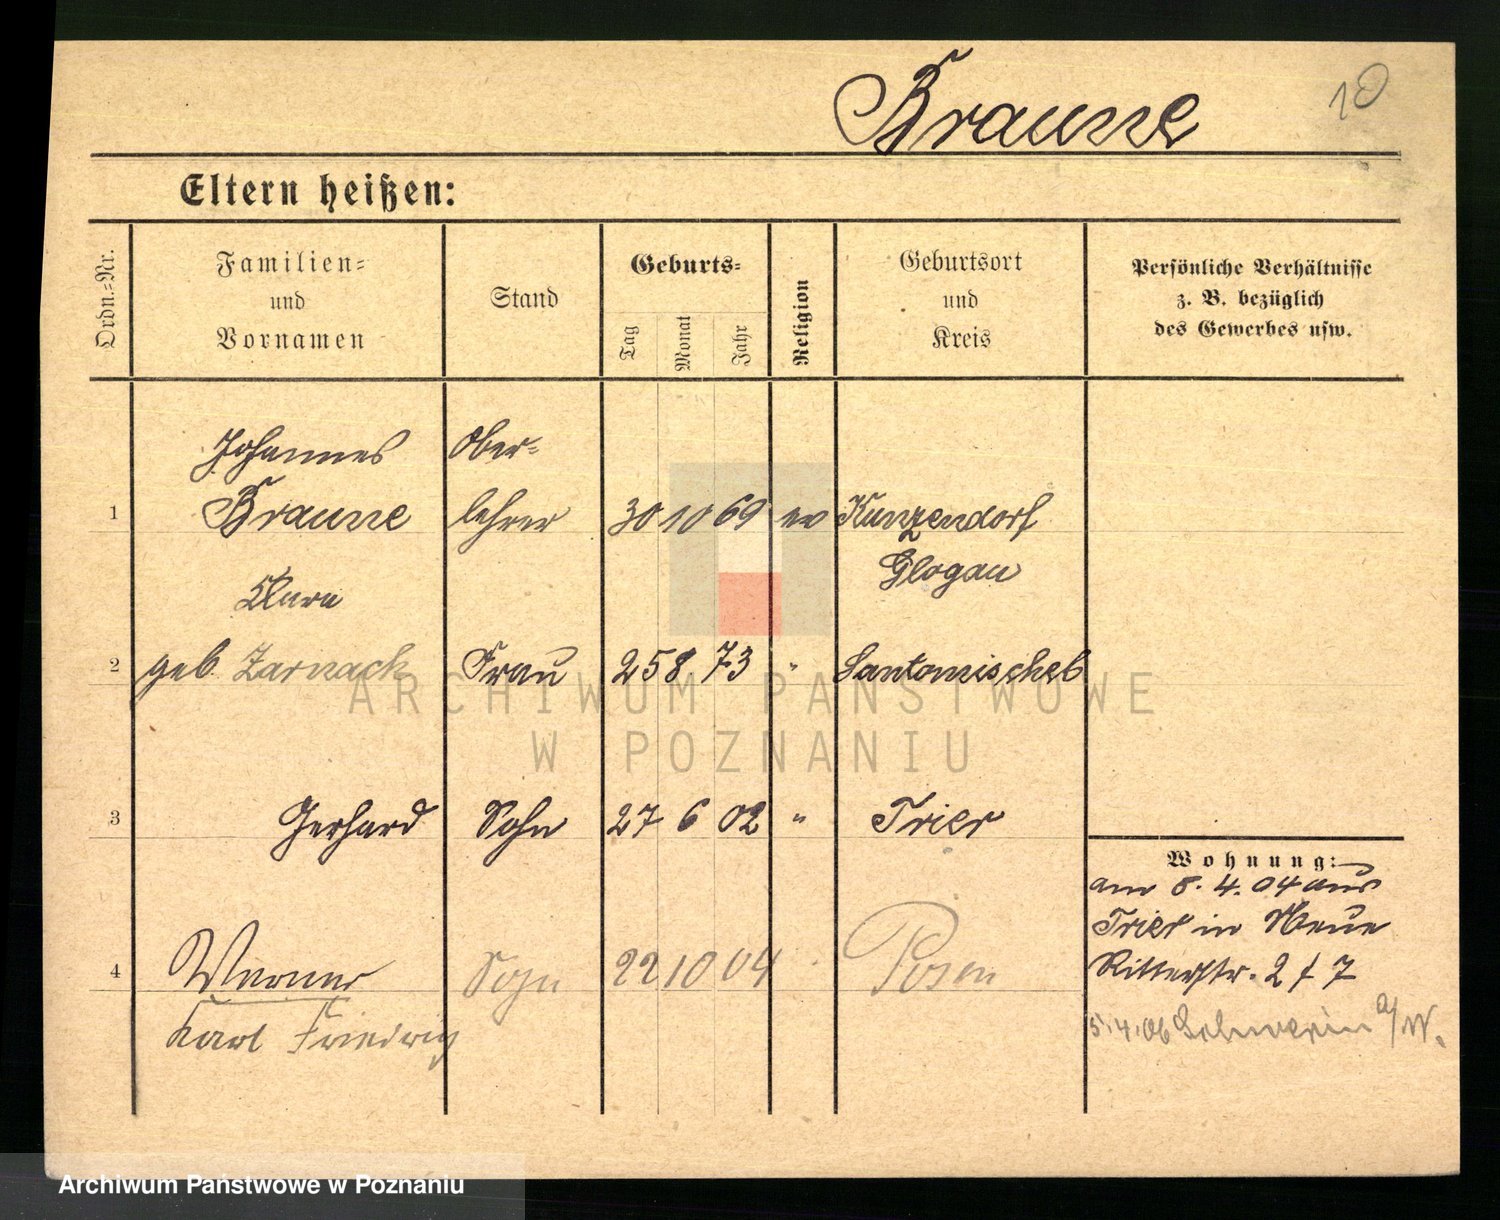 Braune
10
Eltern heißen:
Ordn.=Nr.
Familien=
und
Vornamen
Stand
Geburts=
Tag
Monat
Jahr
Religion
Geburtsort
und
Kreis
Persönliche Verhältnisse
z. B. bezüglich
des Gewerbes usw.
Johannes Ober=
1 Braune lehrer 30 10 69 ev Kunzendorf
Glogau
Klara
2 geb. Zarnack Frau 25 8 73 " Santomischel
3 Gerhard Sohn 27 6 02 " Trier
Wohnung:
am 8.4.04 aus
Trier in Neue
Ritterstr. 2 f 7
4 Werner Sohn 22 10 04 Posen
Karl Friedrich
5.4.06 Schwerin a/W.
ARCHIWUM PAŃSTWOWE
W POZNANIU
Archiwum Państwowe w Poznaniu